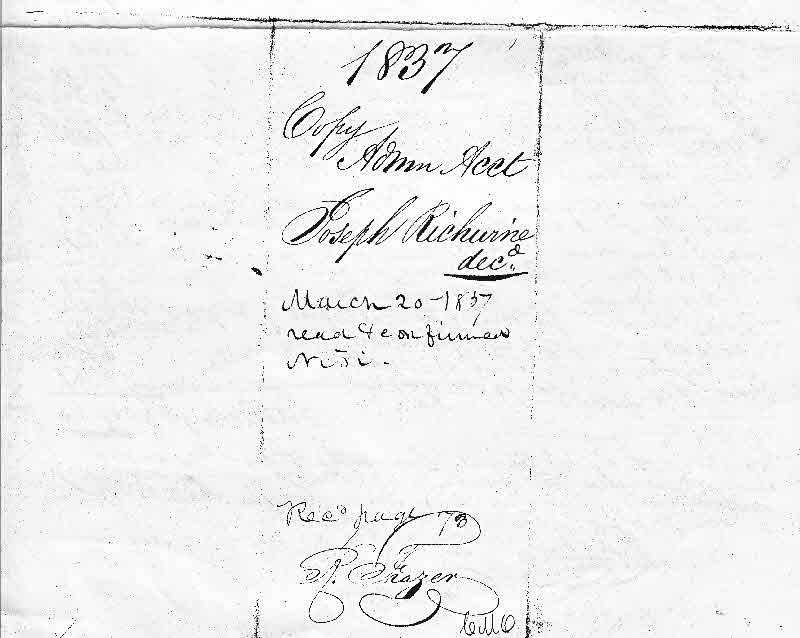 1837
Copy
Admn Acct
Joseph Richwine
decd
March 20-1837
read & confirmed
Nisi.
Recd page 73
R. Frazer